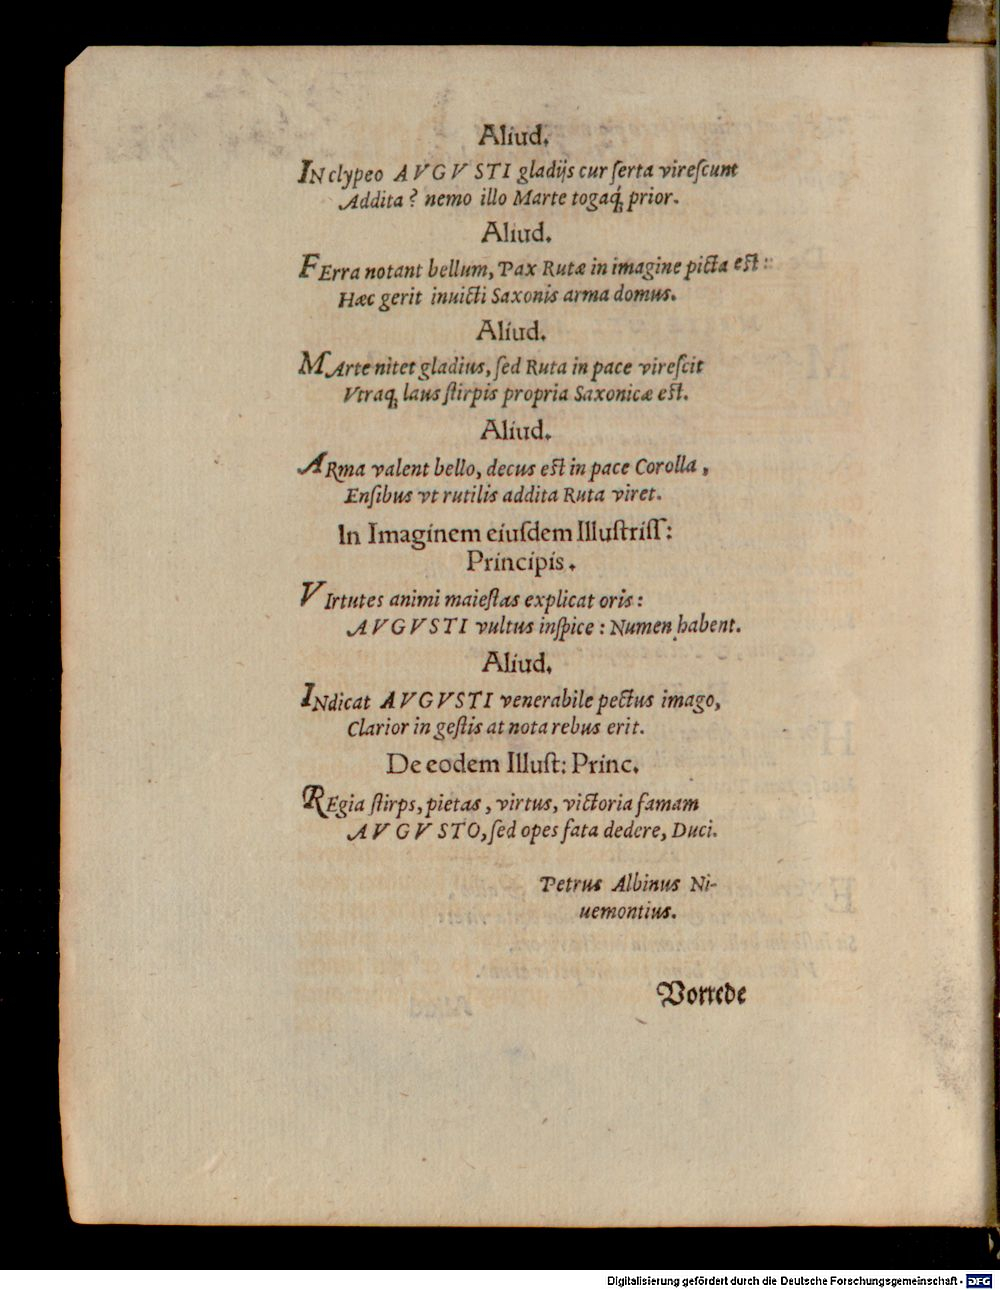 Aliud.
IN clypeo AVGVSTI gladijs cur ſerta vireſcunt
Addita? nemo illo Marte togaq́; prior.
Aliud.
FErra notant bellum, Pax Rutæ in imagine picta eſt:
Hæc gerit inuicti Saxonis arma domus.
Aliud.
MArte nitet gladius, ſed Ruta in pace vireſcit
Vtraq; laus ſtirpis propria Saxonicæ eſt.
Aliud.
ARma valent bello, decus eſt in pace Corolla,
Enſibus vt rutilis addita Ruta viret.
In Imaginem eiuſdem Illuſtriſſ:
Principis.
VIrtutes animi maieſtas explicat oris:
AVGVSTI vultus inſpice: Numen habent.
Aliud.
INdicat AVGVSTI venerabile pectus imago,
Clarior in geſtis at nota rebus erit.
De eodem Illuſt: Princ.
REgia ſtirps, pietas, virtus, victoria famam
AVGVSTO, ſed opes fata dedere, Duci.
Petrus Albinus Ni-
uemontius.
Vorrede
Digitalisierung gefördert durch die Deutsche Forschungsgemeinschaft - DFG